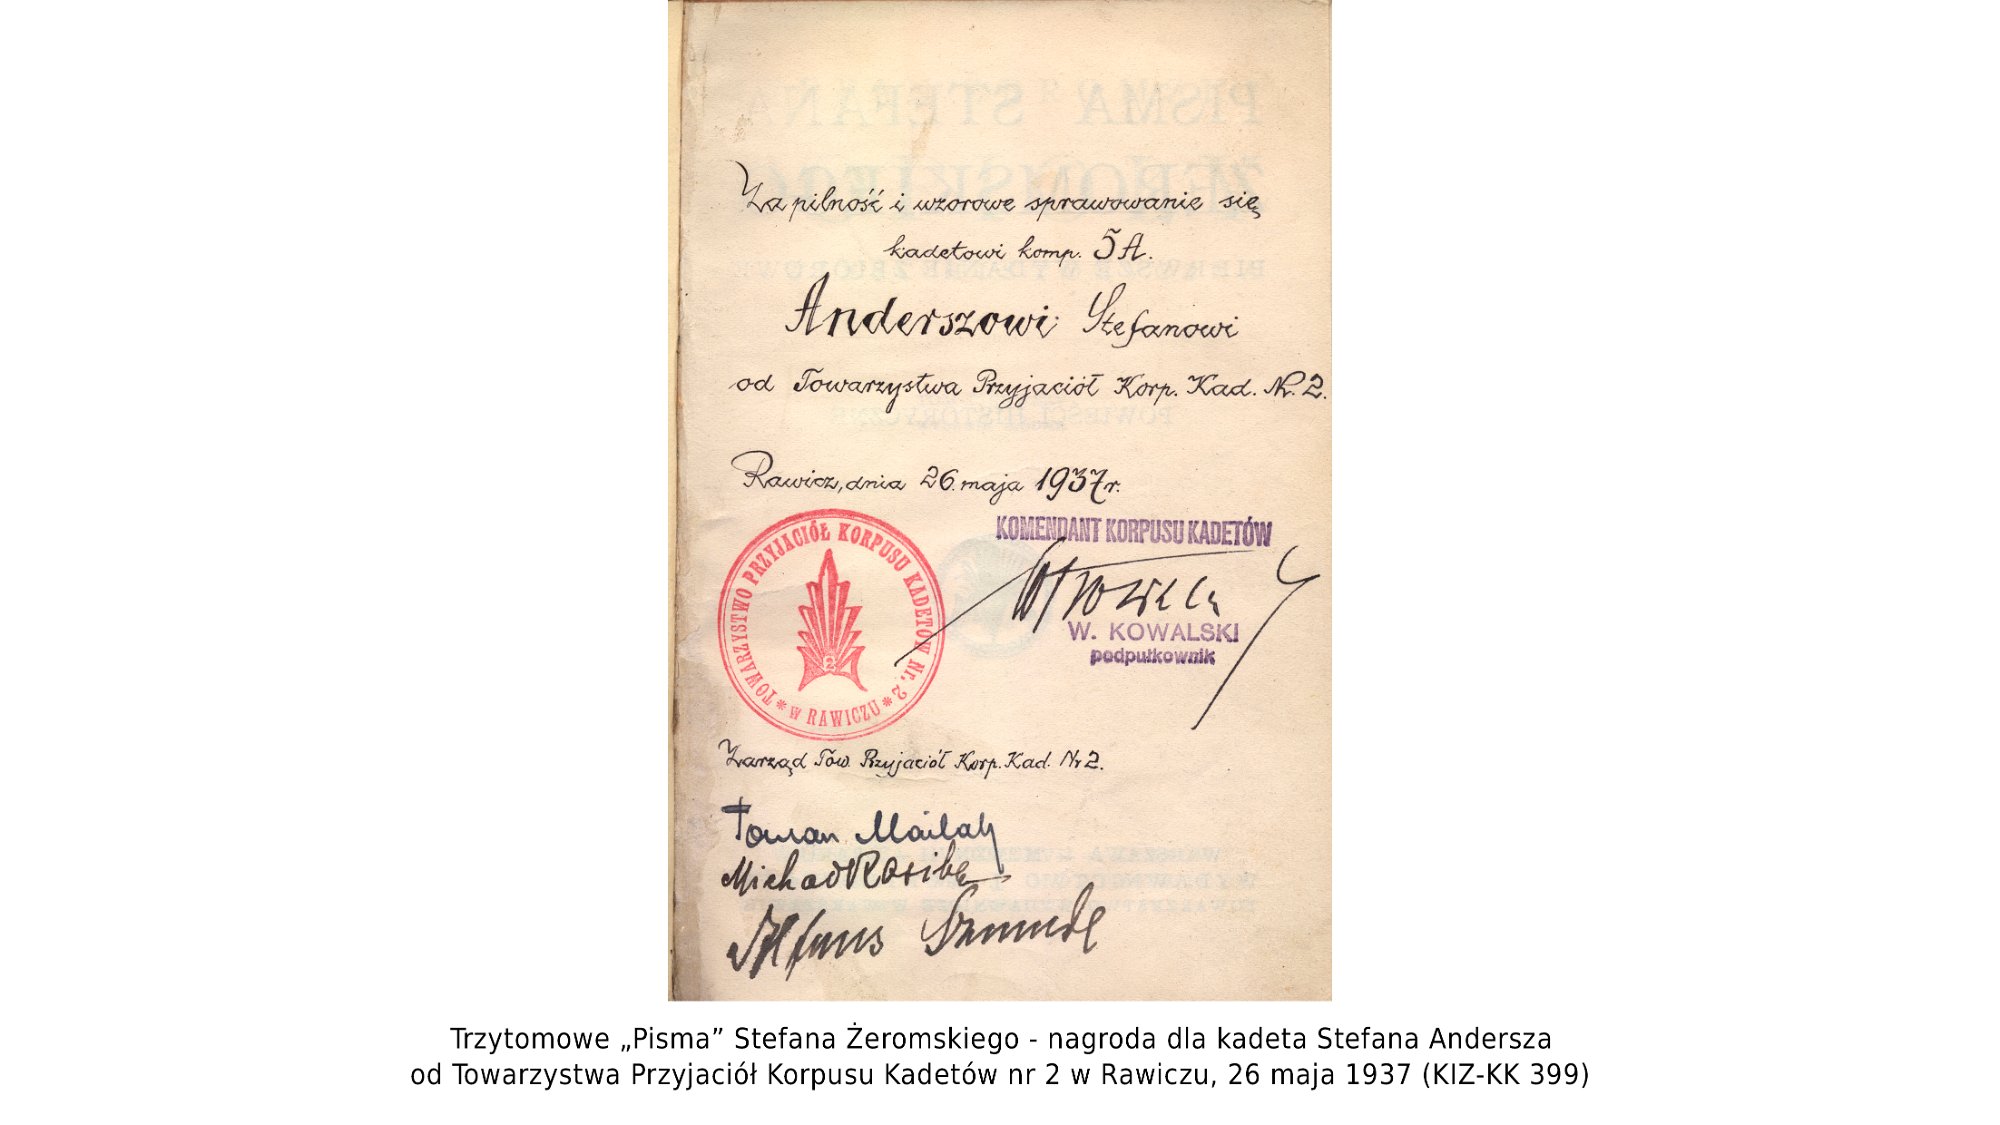 Za pilność i wzorowe sprawowanie się
kadetowi komp. 5A.
Anderszowi Stefanowi
od Towarzystwa Przyjaciół Korp. Kad. Nr. 2.
Rawicz, dnia 26. maja 1937 r.
TOWARZYSTWO PRZYJACIÓŁ KORPUSU KADETÓW Nr. 2
* W RAWICZU *
2
KOMENDANT KORPUSU KADETÓW
W. KOWALSKI
podpułkownik
Zarząd Tow. Przyjaciół Korp. Kad. Nr 2.
Trzytomowe „Pisma” Stefana Żeromskiego - nagroda dla kadeta Stefana Andersza
od Towarzystwa Przyjaciół Korpusu Kadetów nr 2 w Rawiczu, 26 maja 1937 (KIZ-KK 399)